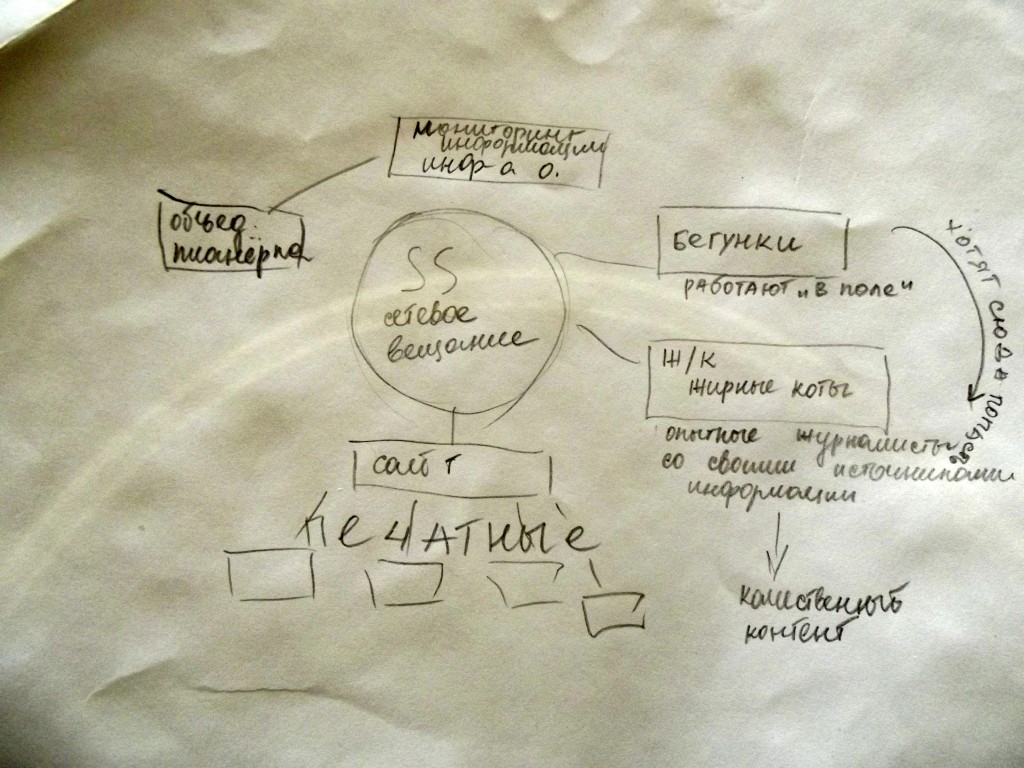 мониторинг
информации
инф-а о.
объед.
пианёрка
SS
сетевое
вещание
Бегунки
работают „в поле"
хотят сюда попасть
Ж/К
жирные коты
опытные журналисты
со своими источниками
информации
сайт
печатные
контент